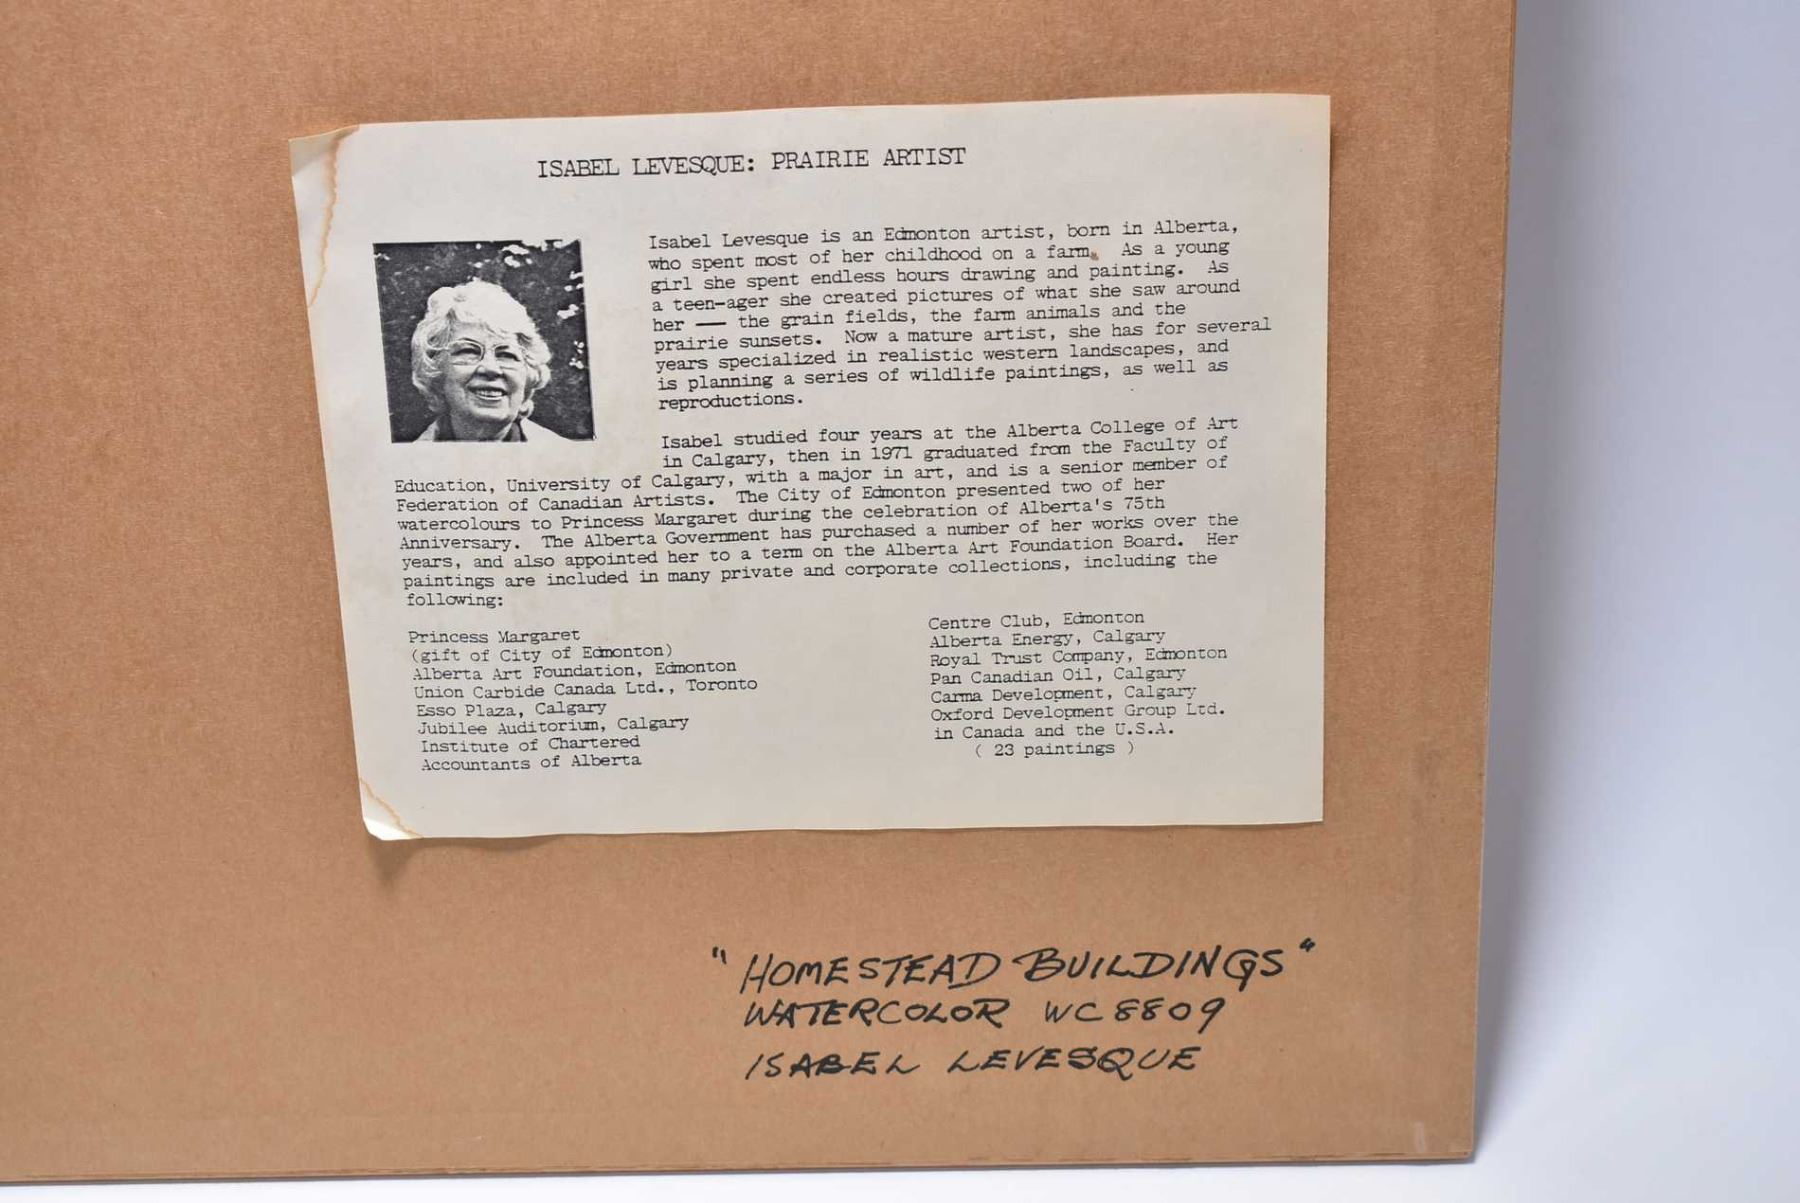 ISABEL LEVESQUE: PRAIRIE ARTIST
Isabel Levesque is an Edmonton artist, born in Alberta,
who spent most of her childhood on a farm. As a young
girl she spent endless hours drawing and painting. As
a teen-ager she created pictures of what she saw around
her — the grain fields, the farm animals and the
prairie sunsets. Now a mature artist, she has for several
years specialized in realistic western landscapes, and
is planning a series of wildlife paintings, as well as
reproductions.
Isabel studied four years at the Alberta College of Art
in Calgary, then in 1971 graduated from the Faculty of
Education, University of Calgary, with a major in art, and is a senior member of
Federation of Canadian Artists. The City of Edmonton presented two of her
watercolours to Princess Margaret during the celebration of Alberta's 75th
Anniversary. The Alberta Government has purchased a number of her works over the
years, and also appointed her to a term on the Alberta Art Foundation Board. Her
paintings are included in many private and corporate collections, including the
following:
Princess Margaret
(gift of City of Edmonton)
Alberta Art Foundation, Edmonton
Union Carbide Canada Ltd., Toronto
Esso Plaza, Calgary
Jubilee Auditorium, Calgary
Institute of Chartered
Accountants of Alberta
Centre Club, Edmonton
Alberta Energy, Calgary
Royal Trust Company, Edmonton
Pan Canadian Oil, Calgary
Carma Development, Calgary
Oxford Development Group Ltd.
in Canada and the U.S.A.
( 23 paintings )
"HOMESTEAD BUILDINGS"
WATERCOLOR WC8809
ISABEL LEVESQUE